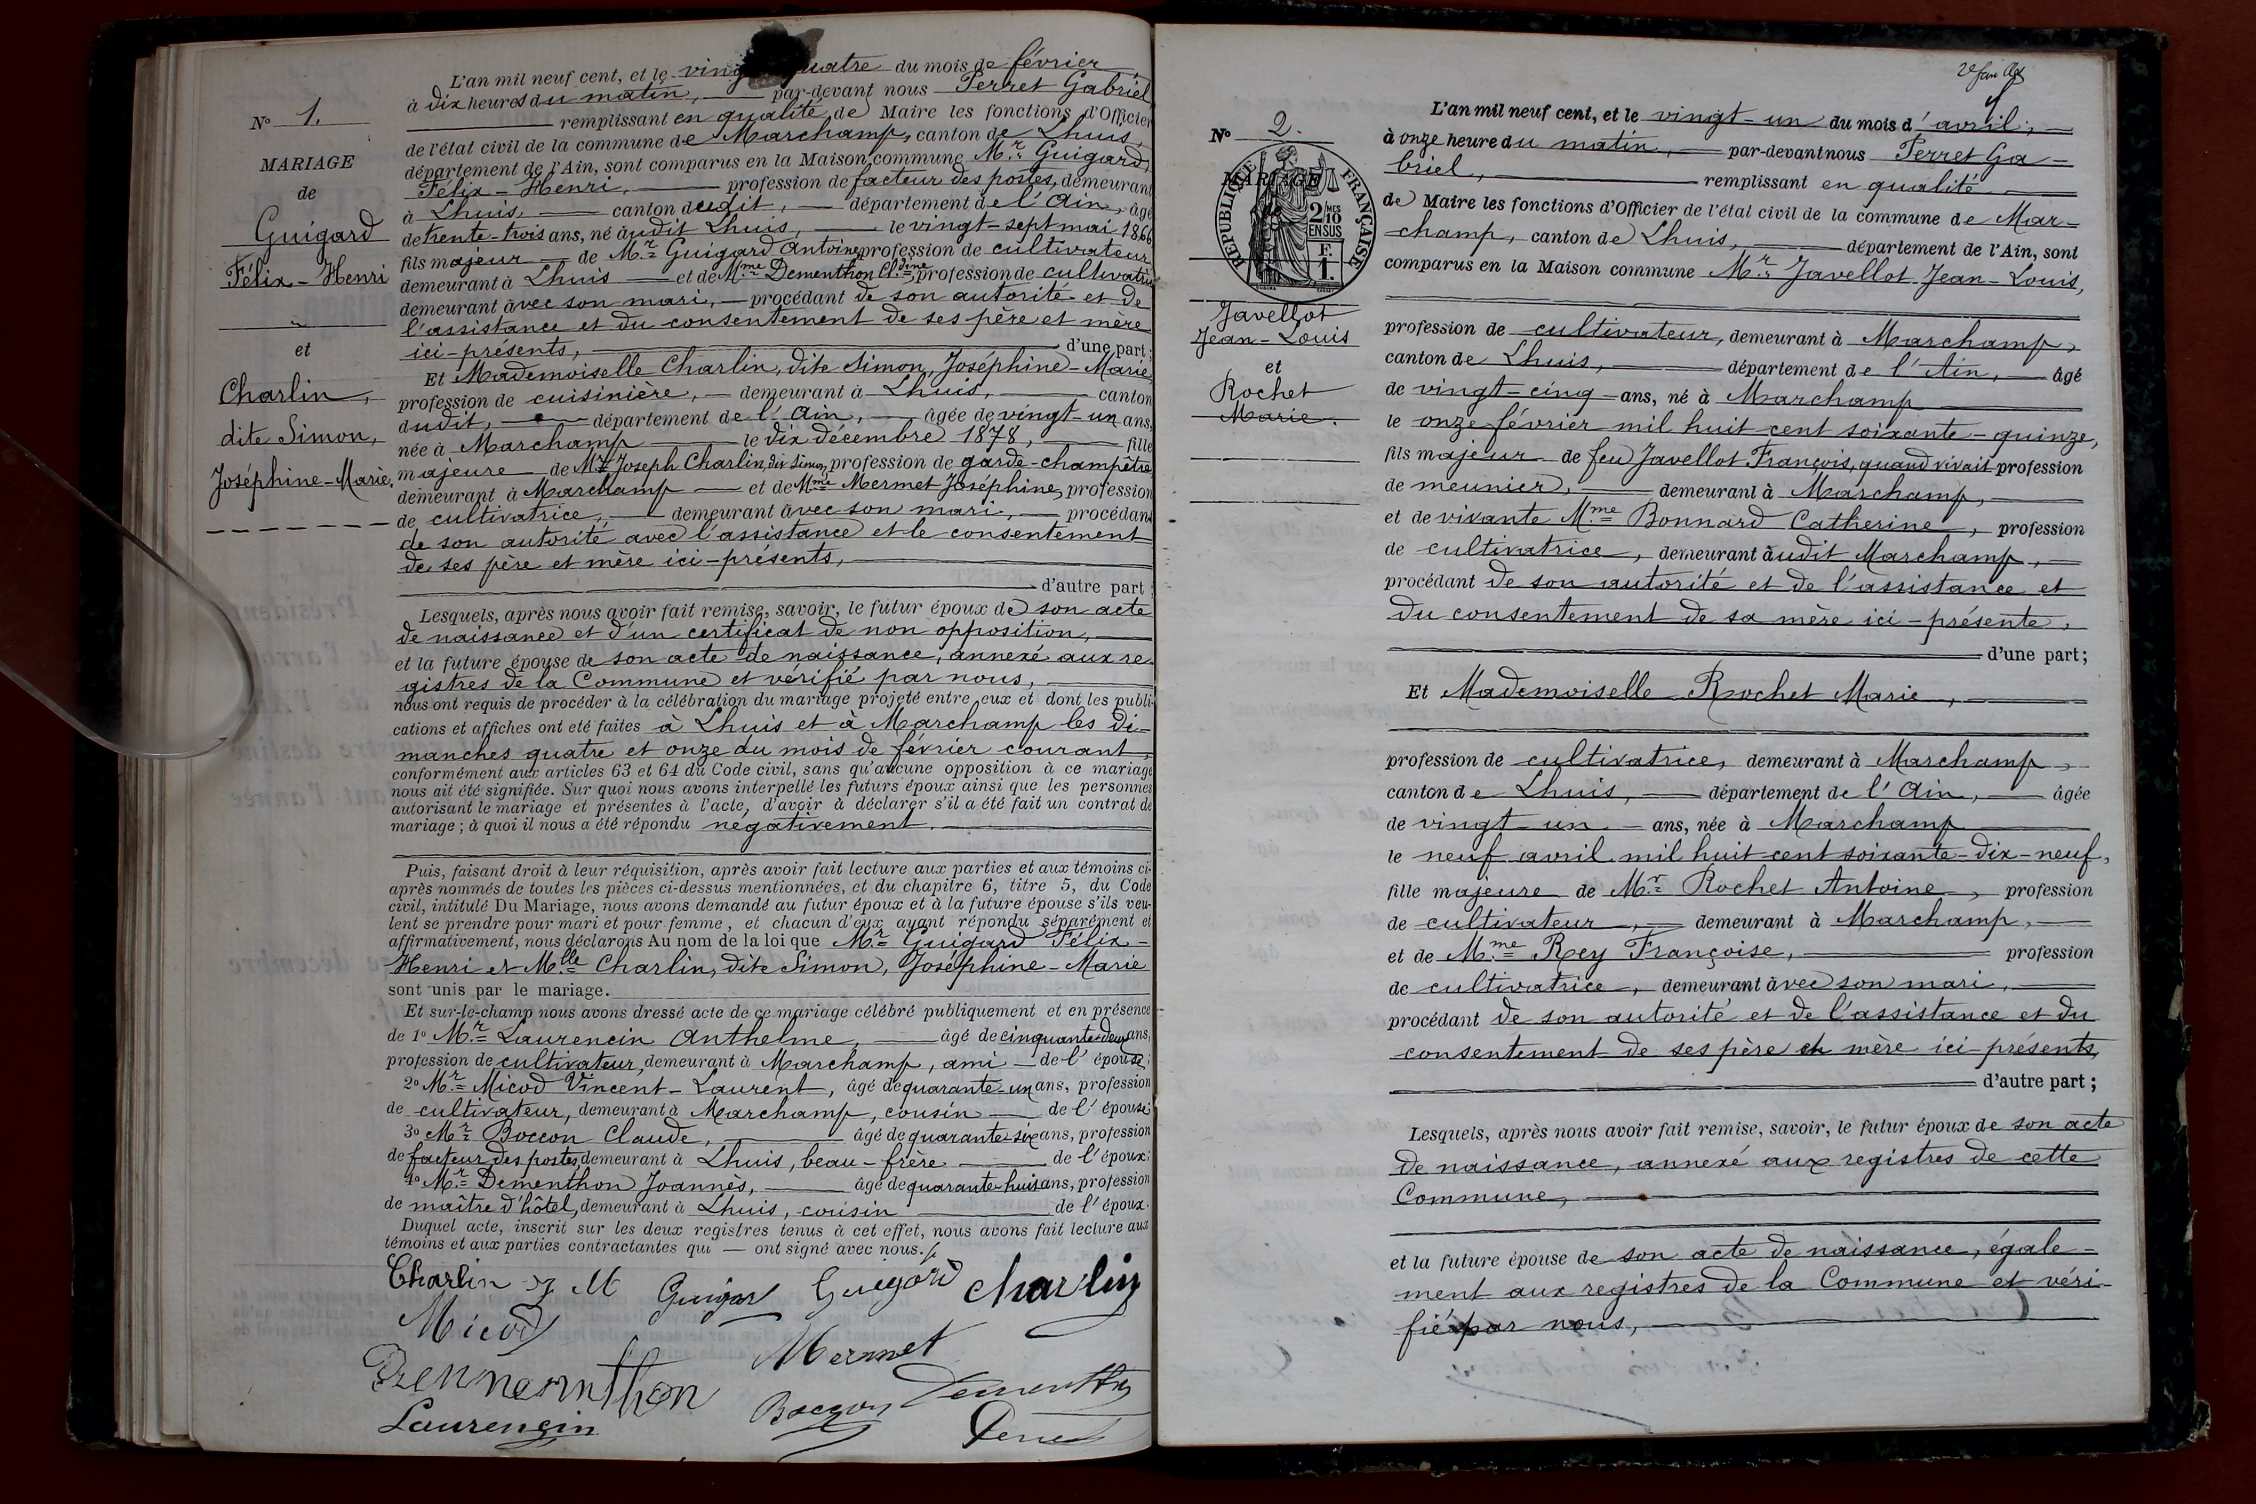 N° 1.
MARIAGE
de
Guigard
Félix-Henri
et
Charlin,
dite Simon,
Joséphine-Marie.
L'an mil neuf cent, et le quatre du mois de février
à dix heures du matin, par-devant nous Perret Gabriel
remplissant en qualité de Maire les fonctions d'Officier
de l'état civil de la commune de Marchamp, canton de Lhuis,
département de l'Ain, sont comparus en la Maison commune Mr Guigard
Félix-Henri, profession de facteur des postes, demeurant
à Lhuis, canton dudit, département de l'Ain, âgé
de trente-trois ans, né audit Lhuis, le vingt-sept mai 1866
fils majeur de Mr Guigard Antoine, profession de cultivateur
demeurant à Lhuis et de Mme Dementhon Cldine, profession de cultivatrice
demeurant avec son mari, procédant de son autorité et de
l'assistance et du consentement de ses père et mère
ici-présents, d'une part;
Et Mademoiselle Charlin, dite Simon, Joséphine-Marie
profession de cuisinière, demeurant à Lhuis, canton
dudit, département de l'Ain, âgée de vingt-un ans,
née à Marchamp le dix décembre 1878, fille
majeure de Mr Joseph Charlin, dit Simon, profession de garde-champêtre
demeurant à Marchamp et de Mme Mermet Joséphine, profession
de cultivatrice, demeurant avec son mari, procédant
de son autorité avec l'assistance et le consentement
de ses père et mère ici-présents,
d'autre part;
Lesquels, après nous avoir fait remise, savoir, le futur époux de son acte
de naissance et d'un certificat de non opposition,
et la future épouse de son acte de naissance, annexé aux re-
gistres de la Commune et vérifié par nous,
nous ont requis de procéder à la célébration du mariage projeté entre eux et dont les publi-
cations et affiches ont été faites à Lhuis et à Marchamp les di-
manches quatre et onze du mois de février courant,
conformément aux articles 63 et 64 du Code civil, sans qu'aucune opposition à ce mariage
nous ait été signifiée. Sur quoi nous avons interpellé les futurs époux ainsi que les personnes
autorisant le mariage et présentes à l'acte, d'avoir à déclarer s'il a été fait un contrat de
mariage; à quoi il nous a été répondu négativement.
Puis, faisant droit à leur réquisition, après avoir fait lecture aux parties et aux témoins ci-
après nommés de toutes les pièces ci-dessus mentionnées, et du chapitre 6, titre 5, du Code
civil, intitulé Du Mariage, nous avons demandé au futur époux et à la future épouse s'ils veu-
lent se prendre pour mari et pour femme, et chacun d'eux ayant répondu séparément et
affirmativement, nous déclarons Au nom de la loi que Mr Guigard Félix-
Henri et Mlle Charlin, dite Simon, Joséphine-Marie
sont unis par le mariage.
Et sur-le-champ nous avons dressé acte de ce mariage célébré publiquement et en présence
de 1° Mr Laurencin Anthelme, âgé de cinquante-deux ans,
profession de cultivateur, demeurant à Marchamp, ami de l'épouse;
2° Mr Micod Vincent-Laurent, âgé de quarante-un ans, profession
de cultivateur, demeurant à Marchamp, cousin de l'épouse;
3° Mr Boccon Claude, âgé de quarante-six ans, profession
de facteur des postes, demeurant à Lhuis, beau-frère de l'époux;
4° Mr Dementhon Joannès, âgé de quarante-huit ans, profession
de maître d'hôtel, demeurant à Lhuis, cousin de l'époux.
Duquel acte, inscrit sur les deux registres tenus à cet effet, nous avons fait lecture aux
témoins et aux parties contractantes qui ont signé avec nous.
Charlin J M Guigard Guigard Charlin
Micod
Mermet
Dementhon
Boccon
Laurencin
Perret
N° 2.
MARIAGE
RÉPUBLIQUE FRANÇAISE
2 MES
10
EN SUS
F.
1.
Javellot
Jean-Louis
et
Rochet
Marie.
L'an mil neuf cent, et le vingt-un du mois d'avril,
à onze heure du matin, par-devant nous Perret Ga-
briel, remplissant en qualité
de Maire les fonctions d'Officier de l'état civil de la commune de Mar-
champ, canton de Lhuis, département de l'Ain, sont
comparus en la Maison commune Mr Javellot Jean-Louis,
profession de cultivateur, demeurant à Marchamp,
canton de Lhuis, département de l'Ain, âgé
de vingt-cinq ans, né à Marchamp
le onze février mil huit cent soixante-quinze,
fils majeur de feu Javellot François, quand vivait profession
de meunier, demeurant à Marchamp,
et de vivante Mme Bonnard Catherine, profession
de cultivatrice, demeurant audit Marchamp,
procédant de son autorité et de l'assistance et
du consentement de sa mère ici-présente,
d'une part;
Et Mademoiselle Rochet Marie,
profession de cultivatrice, demeurant à Marchamp,
canton de Lhuis, département de l'Ain, âgée
de vingt-un ans, née à Marchamp
le neuf avril mil huit cent soixante-dix-neuf,
fille majeure de Mr Rochet Antoine, profession
de cultivateur, demeurant à Marchamp,
et de Mme Rey Françoise, profession
de cultivatrice, demeurant avec son mari,
procédant de son autorité et de l'assistance et du
consentement de ses père et mère ici-présents,
d'autre part;
Lesquels, après nous avoir fait remise, savoir, le futur époux de son acte
de naissance, annexé aux registres de cette
Commune,
et la future épouse de son acte de naissance, égale-
ment aux registres de la Commune et véri-
fié par nous,